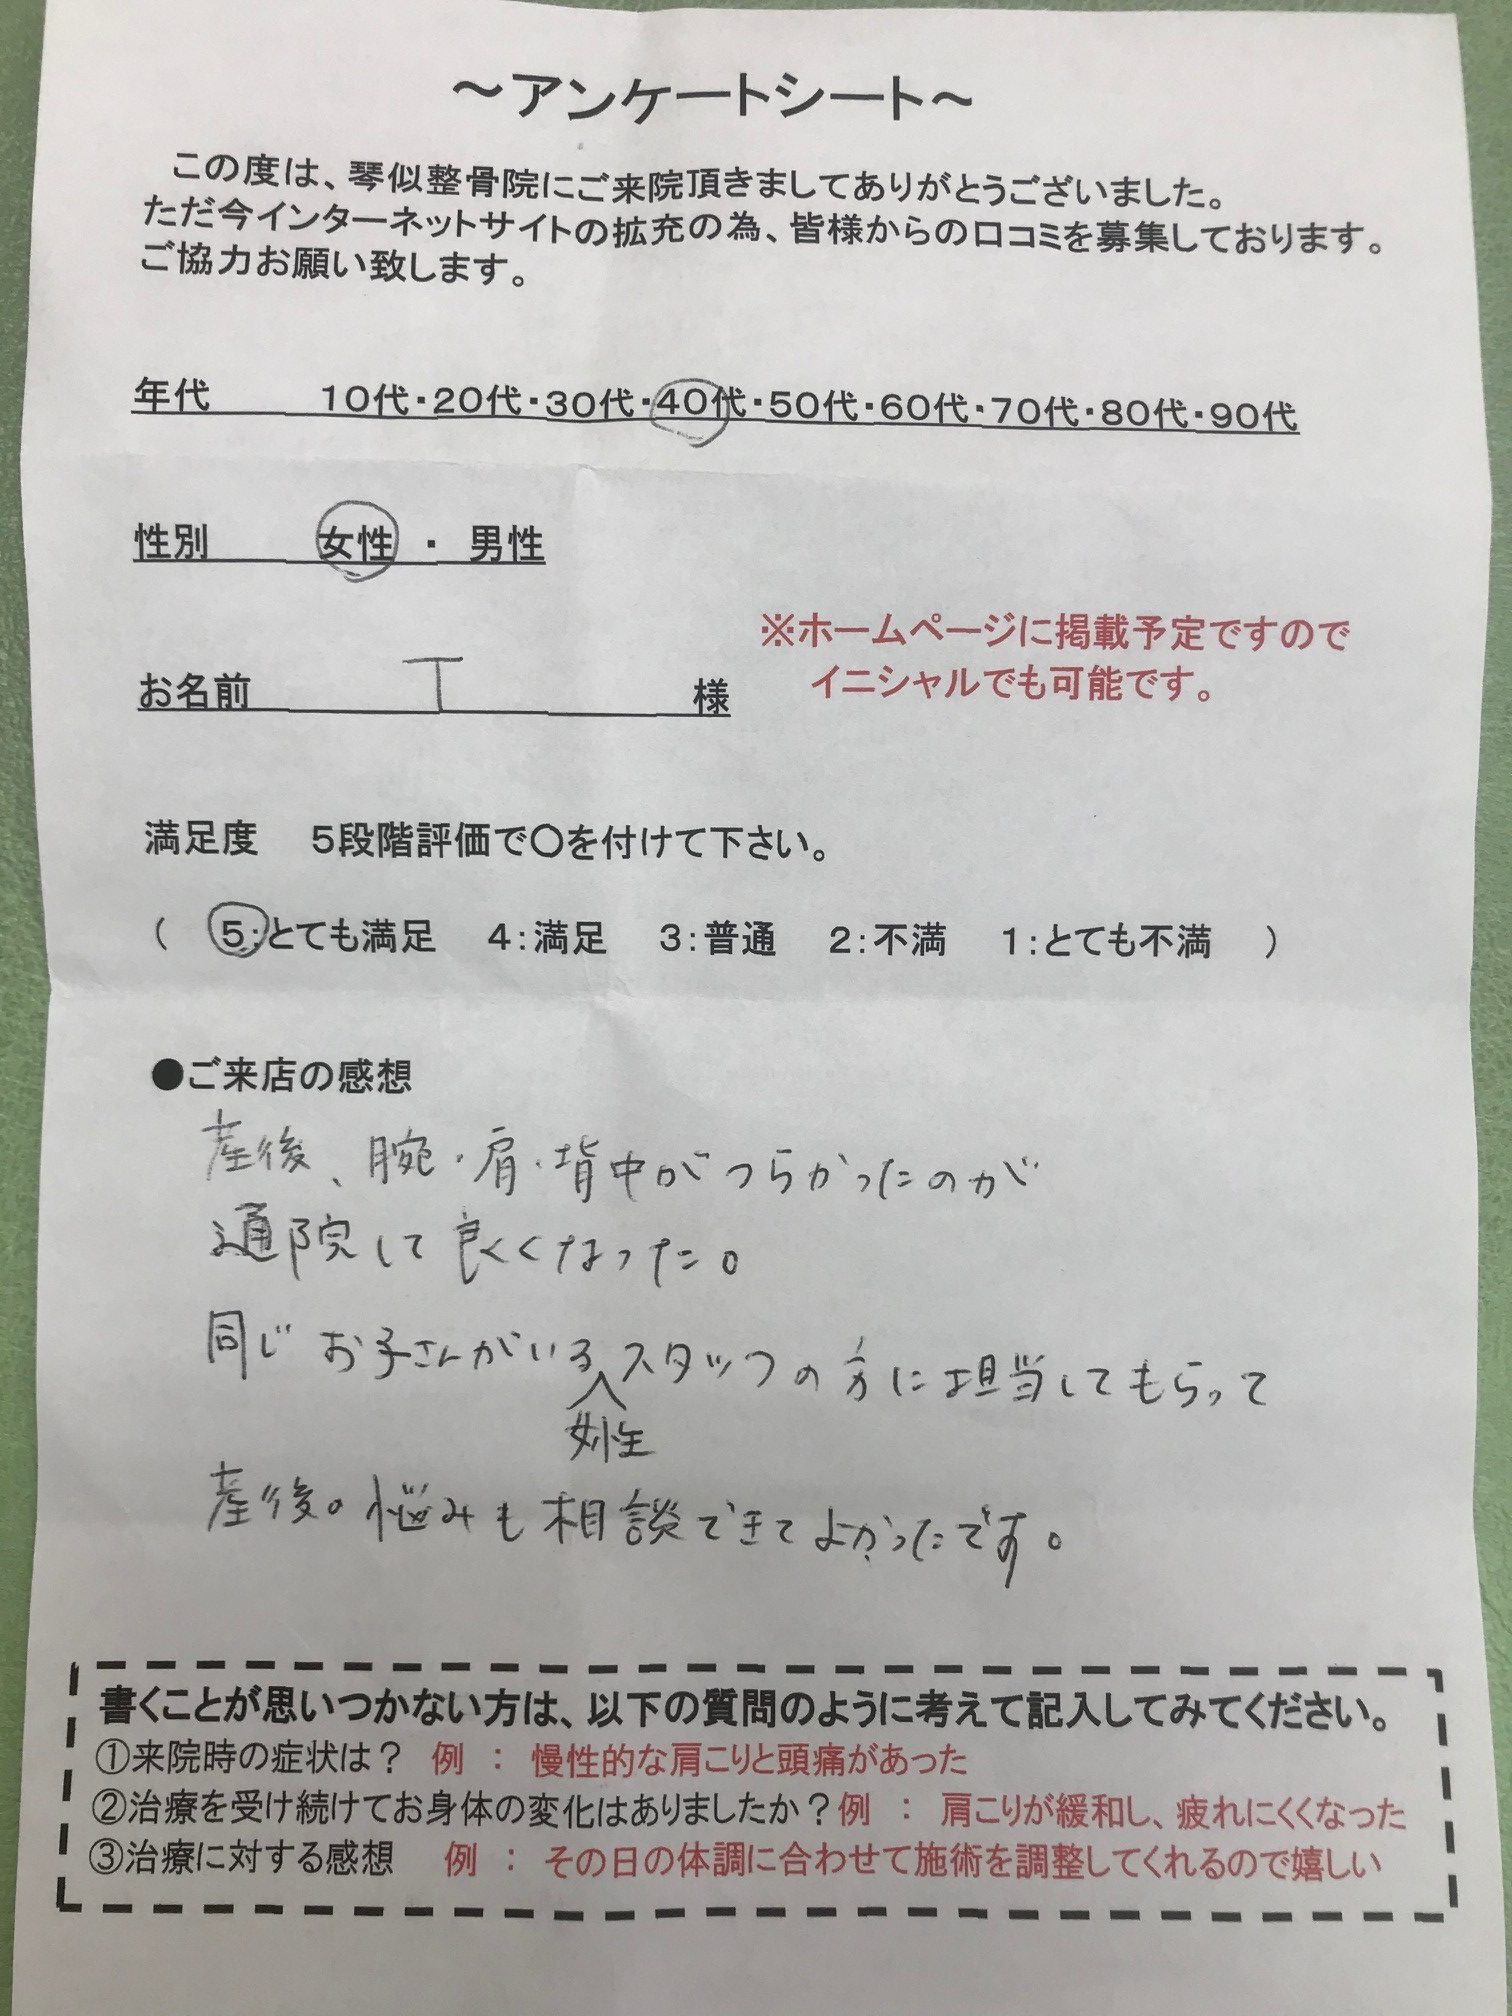 ～アンケートシート～
この度は、琴似整骨院にご来院頂きましてありがとうございました。
ただ今インターネットサイトの拡充の為、皆様からの口コミを募集しております。
ご協力お願い致します。
年代　10代・20代・30代・40代・50代・60代・70代・80代・90代
性別　女性　・　男性
※ホームページに掲載予定ですので
イニシャルでも可能です。
お名前　T　様
満足度　5段階評価で〇を付けて下さい。
（　5:とても満足　4:満足　3:普通　2:不満　1:とても不満　）
●ご来店の感想
産後、腕・肩・背中がつらかったのが
通院して良くなった。
同じお子さんがいるスタッフの方に担当してもらって
女性
産後の悩みも相談できてよかったです。
書くことが思いつかない方は、以下の質問のように考えて記入してみてください。
①来院時の症状は？　例　：　慢性的な肩こりと頭痛があった
②治療を受け続けてお身体の変化はありましたか？例　：　肩こりが緩和し、疲れにくくなった
③治療に対する感想　例　：　その日の体調に合わせて施術を調整してくれるので嬉しい